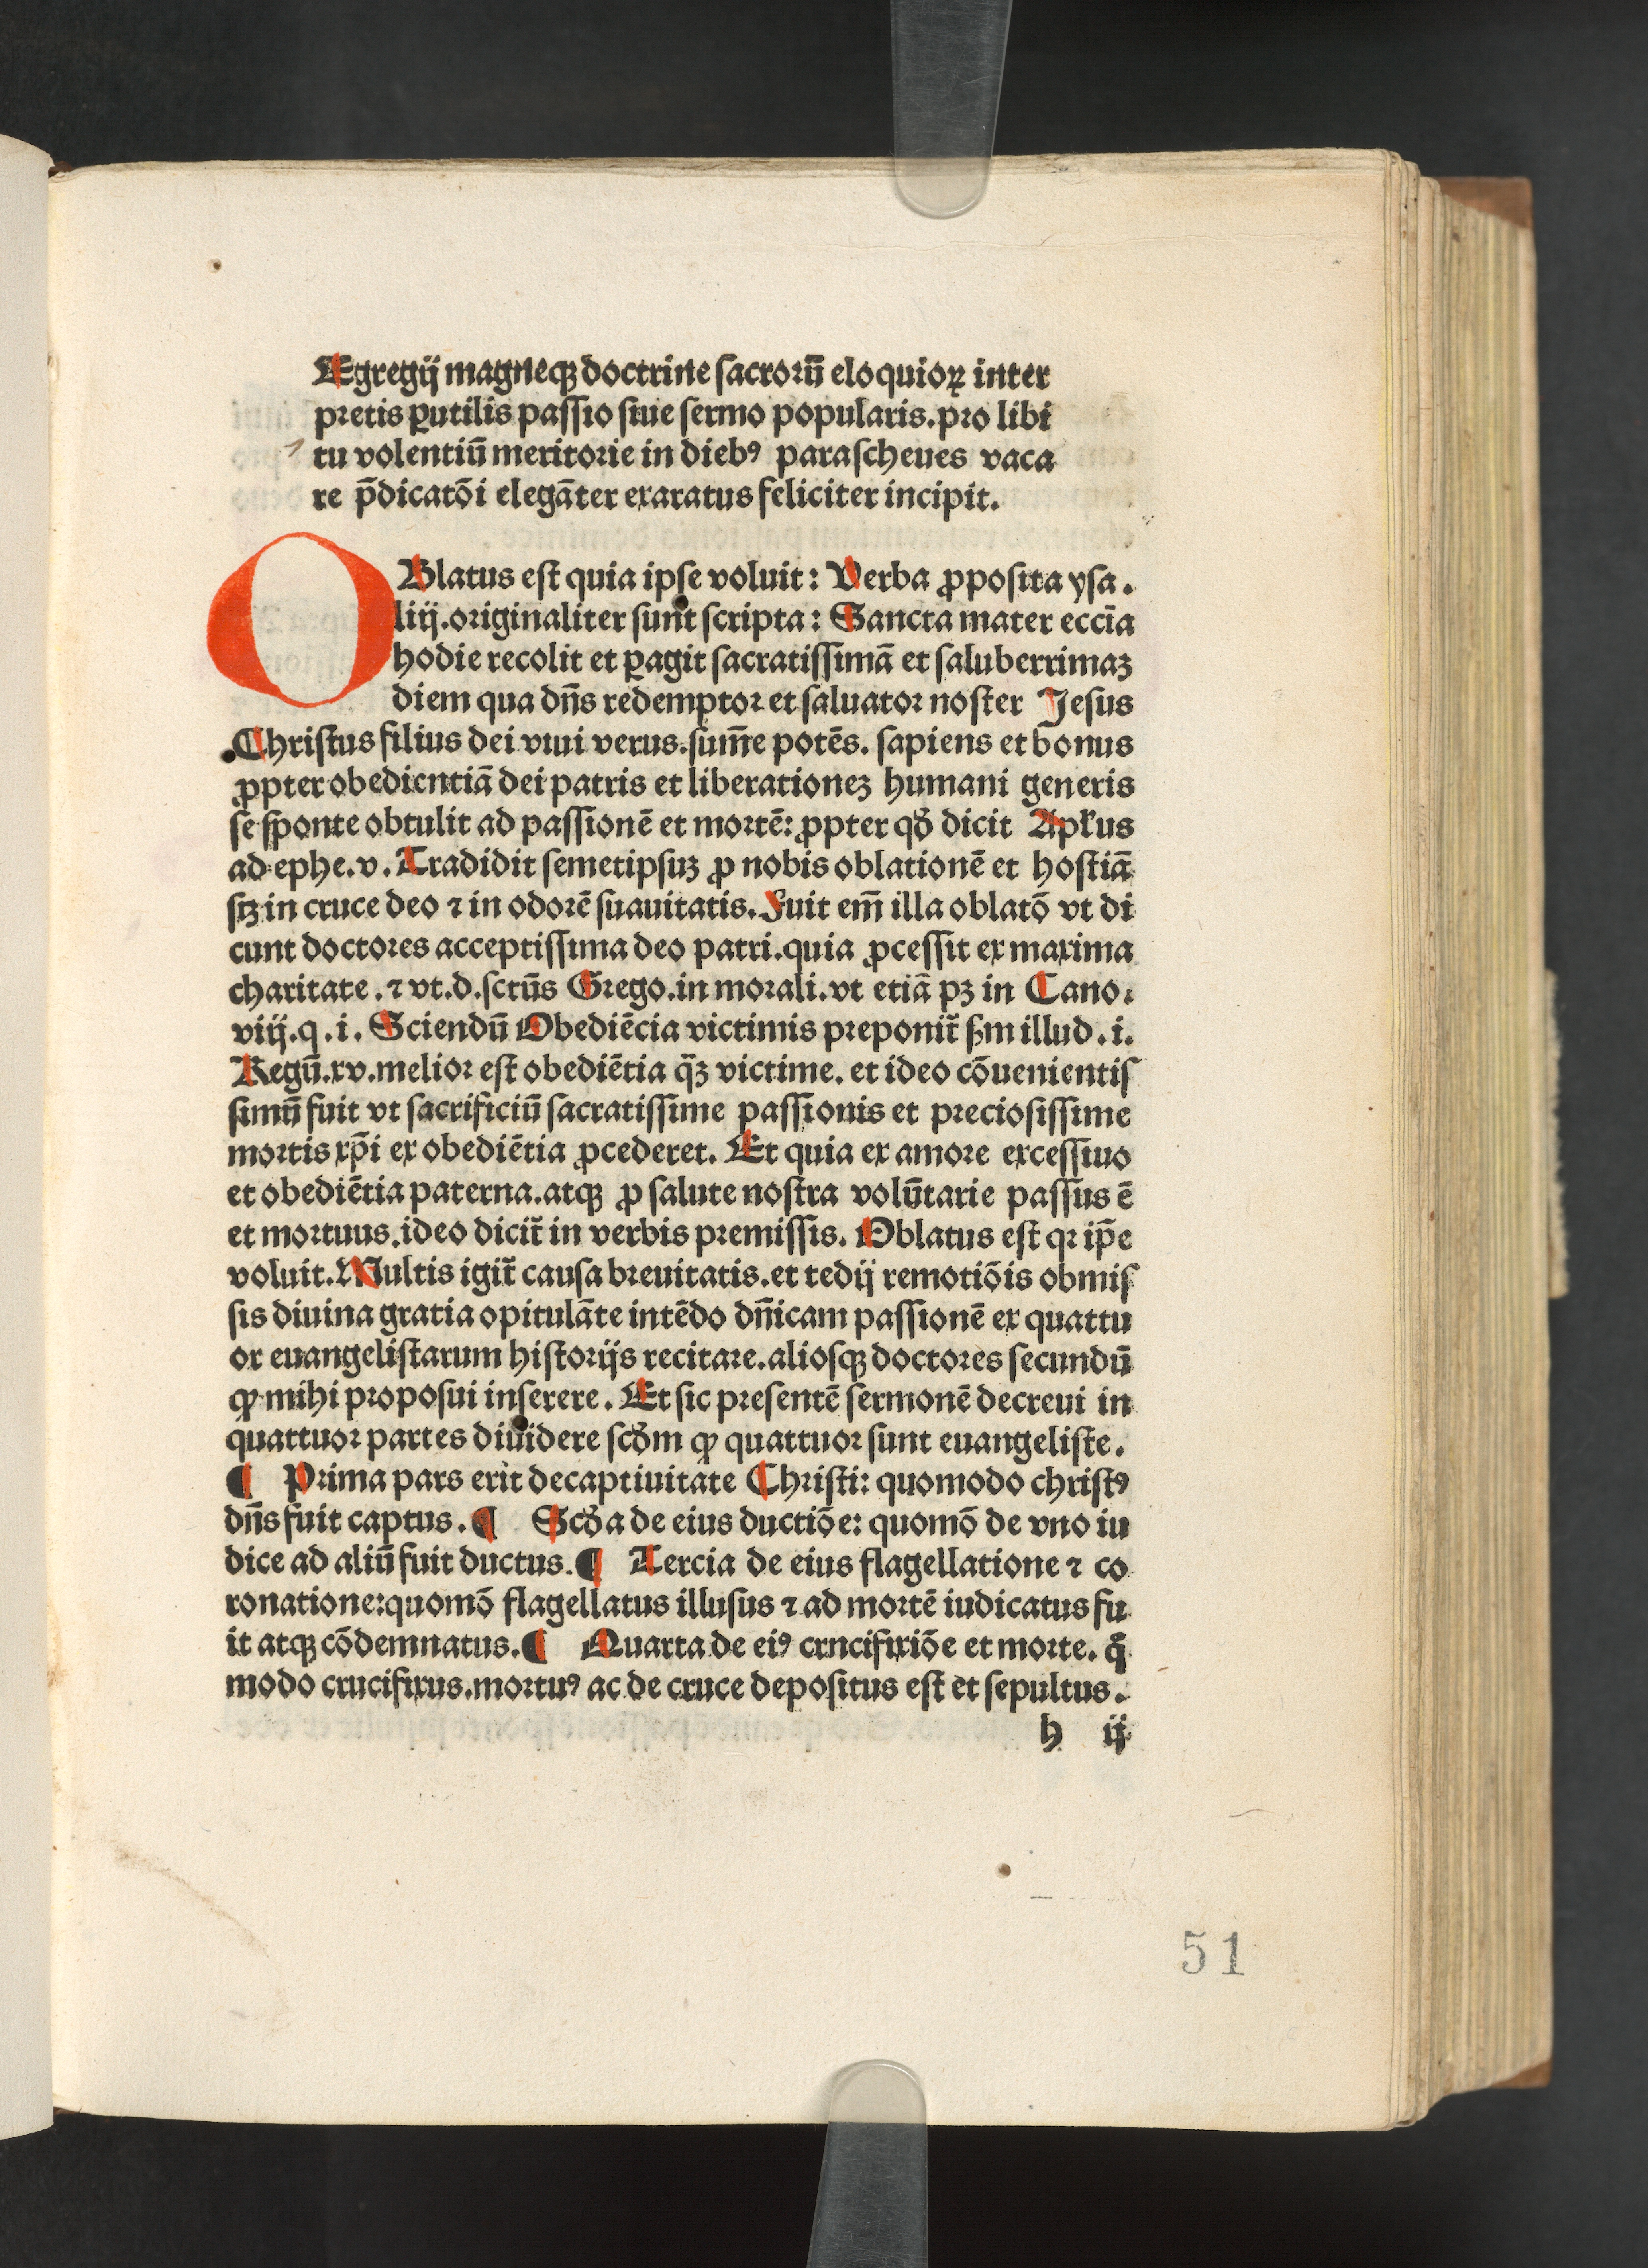 Egregij magneqꝫ doctrine sacrorū eloquioꝝ inter
pretis ꝑutilis passio siue sermo popularis. pro libi
tu volentiū meritorie in diebꝰ parascheues vaca
re p̄dicatōi elegāter exaratus feliciter incipit.
OBlatus est quia ipse voluit: Verba ꝓposita ysa.
liij. originaliter sunt scripta: Sancta mater eccīa
hodie recolit et ꝑagit sacratissimā et saluberrimaꝫ
diem qua dn̄s redemptor et saluator noster Jesus
Christus filius dei viui verus. sum̄e potēs. sapiens et bonus
ꝓpter obedientiā dei patris et liberationeꝫ humani generis
se sponte obtulit ad passionē et mortē: ꝓpter qd̕ dicit Apl̕us
ad ephe. v. Tradidit semetipsuꝫ ꝓ nobis oblationē et hostiā
sꝫ in cruce deo ⁊ in odorē suauitatis. Fuit em̄ illa oblatō vt di
cunt doctores acceptissima deo patri. quia ꝓcessit ex maxima
charitate. ⁊ vt. d. sctūs Grego. in morali. vt etiā pꝫ in Cano.
viij. q. i. Sciendū Obediēcia victimis preponit̕ ẜm illud. i.
Regū. xv. melior est obediētia q̄ꝫ victime. et ideo cōuenientis
simū fuit vt sacrificiū sacratissime passionis et preciosissime
mortis xp̄i ex obediētia ꝓcederet. Et quia ex amore excessiuo
et obediētia paterna. atqꝫ ꝓ salute nostra volūtarie passus ē
et mortuus. ideo dicit̕ in verbis premissis. Oblatus est qꝛ ip̄e
voluit. Multis igit̕ causa breuitatis. et tedij remotiōis obmis
sis diuina gratia opitulāte intēdo dn̄icam passionē ex quattu
or euangelistarum historijs recitare. aliosqꝫ doctores secundū
ꝙ mihi proposui inserere. Et sic presentē sermonē decreui in
quattuor partes diuidere scd̕m ꝙ quattuor sunt euangeliste.
¶ Prima pars erit de captiuitate Christi: quomodo christꝰ
dn̄s fuit captus. ¶ Scd̕a de eius ductiōe: quomō de vno iu
dice ad aliū fuit ductus. ¶ Tercia de eius flagellatione ⁊ co
ronatione: quomō flagellatus illusus ⁊ ad mortē iudicatus fu
it atqꝫ cōdemnatus. ¶ Quarta de eiꝰ crncifixiōe et morte. qͦ
modo crucifixus. mortuꝰ ac de cruce depositus est et sepultus.
h ij
51